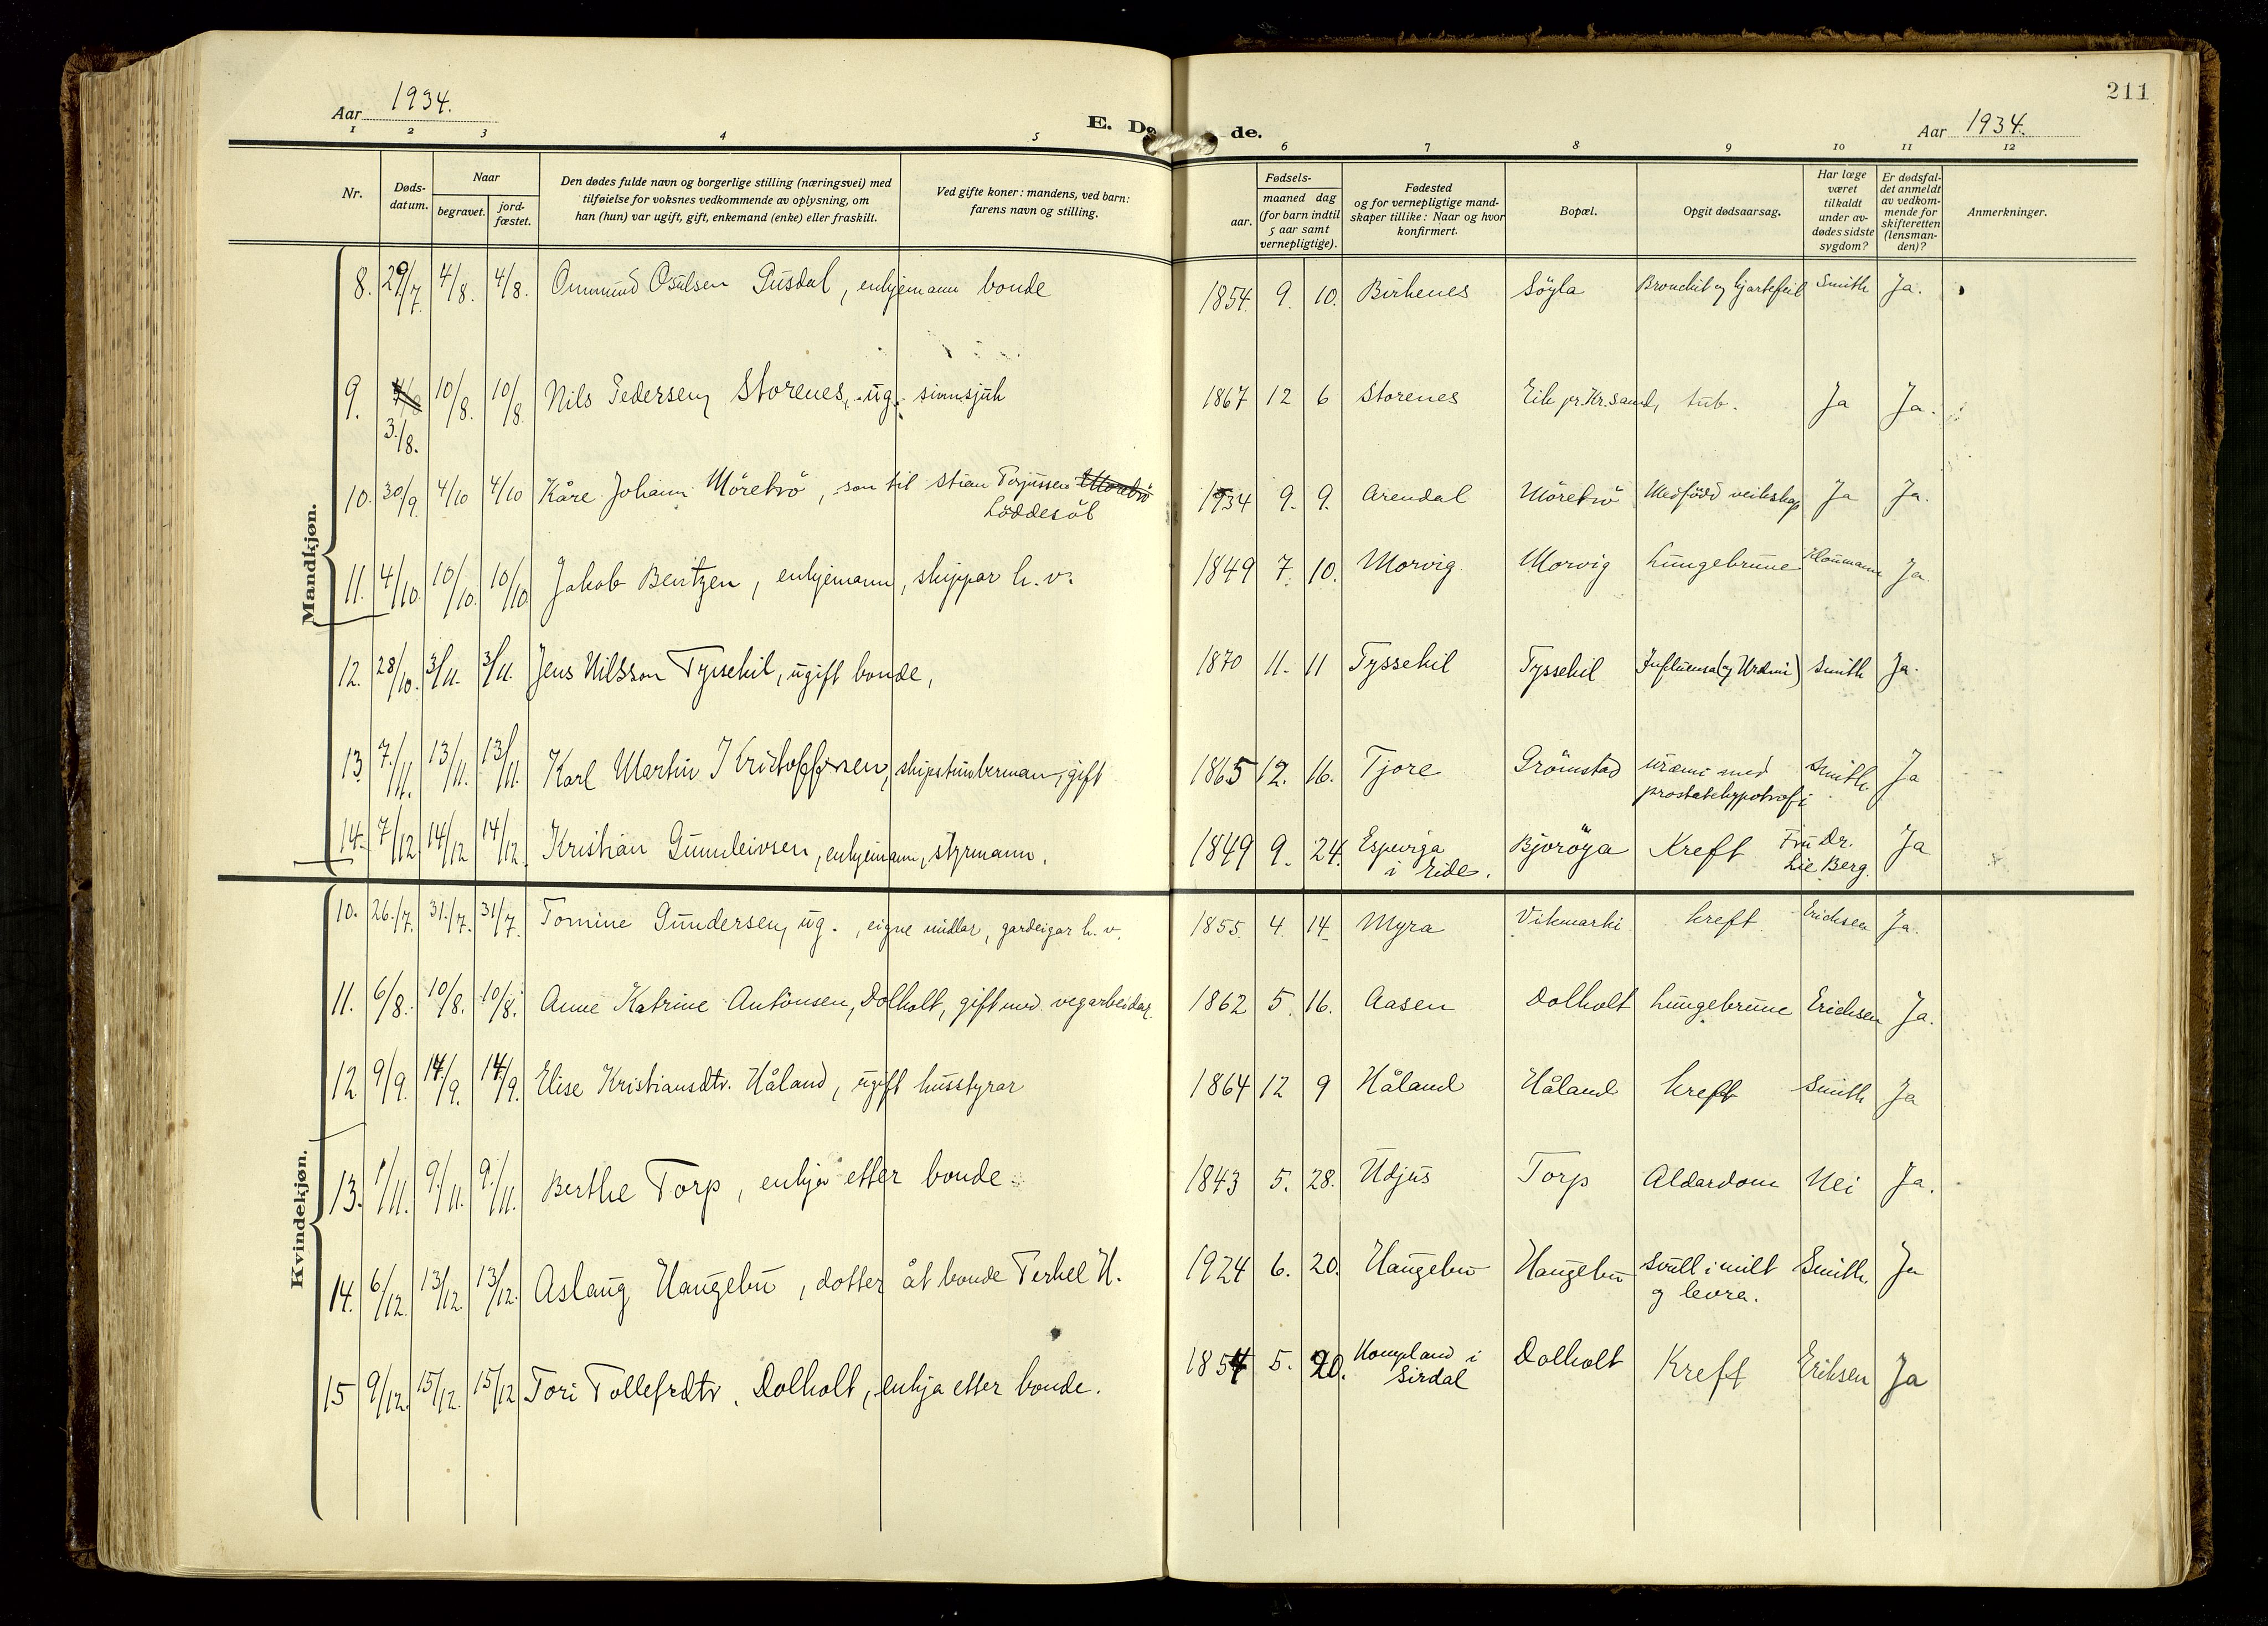 211
Aar 1934.
E. Dø de.
Aar 1934.
1 2 3 4 5 6 7 8 9 10 11 12
Nr.
Døds-
datum.
Naar
begravet.
jord-
fæstet.
Den dødes fulde navn og borgerlige stilling (næringsvei) med
tilføielse for voksnes vedkommende av oplysning, om
han (hun) var ugift, gift, enkemand (enke) eller fraskilt.
Ved gifte koner: mandens, ved barn:
farens navn og stilling.
Fødsels-
aar.
maaned dag
(for barn indtil
5 aar samt
vernepligtige).
Fødested
og for vernepligtige mand-
skaper tillike: Naar og hvor
konfirmert.
Bopæl.
Opgit dødsaarsag.
Har læge
været
tilkaldt
under av-
dødes sidste
sygdom?
Er dødsfal-
det anmeldt
av vedkom-
mende for
skifteretten
(lensman-
den)?
Anmerkninger.
Mandkjøn.
8. 29/7. 4/8. 4/8. Ommund Osulsen Gusdal, enkjemann bonde 1854. 9. 10. Birkenes Söyla Bronchit og hjartefeil Smith Ja.
9. 10/8. 10/8. Nils Pedersen Storenes, ug. sinnsjuk 1867 12 6 Storenes Eik pr. Kr.sand, tub. Ja Ja.
3./8.
10. 30/9. 4/10 4/10 Kåre Johann Möretrö, son til Stian Terjussen Möretrö 1934 9. 9. Arendal Möretrö Medfödd veikskap Ja Ja.
Löddesöl
11. 4/10. 10/10. 10/10. Jakob Bentzen, enkjemann, skippar h. v. 1849 7. 10. Morvig Morvig Lungebrune Houmann Ja
12. 28/10. 3/11. 3/11. Jens Nilsson Tyssekil, ugift bonde, 1870 11. 11 Tyssekil Tyssekil Influensa (og Uræmi) Smith Ja.
13. 7./11. 13/11. 13/11. Karl Martin Kristoffersen, skipstimberman, gift 1865 12. 16. Tjore Grömstad uræmi med Smith Ja
prostatehypotrofi
14. 7/12. 14/12 14/12. Kristian Gunnleivsen, enkjemann, styrmann. 1849 9. 24. Espeviga Bjoröya Kreft Fru Dr. Ja
i Eide. Lie Berg.
Kvindekjøn.
10. 26./7. 31./7. 31/7. Tomine Gundersen, ug., eigne midlar, gardeigar h. v. 1855. 4. 14. Myra Vikmarki kreft Erichsen Ja.
11. 6/8. 10/8. 10/8. Anne Katrine Antonsen, Dolholt, gift med vegarbeidar. 1862 5. 16. Aasen Dolholt Lungebrune Erichsen Ja.
12 9/9. 14./9. 14./9. Elise Kristiansdtr. Håland, ugift husstyrar 1864 12 9 Håland Håland kreft Smith Ja
13. 1/11. 9./11. 9./11. Berthe Torp, enkja etter bonde. 1843 5. 28. Udjus Torp Alderdom Nei Ja.
14. 6/12. 13/12. 13/12. Aslaug Haugebu, dotter åt bonde Terkel H. 1924 6. 20. Haugebu Haugebu Svull i milt Smith Ja
og levra.
15 9/12. 15/12. 15/12 Tori Tollefsdtr. Dolholt, enkja etter bonde. 1854 5. 20. Hompland i Dolholt Kreft Eriksen Ja
Sirdal